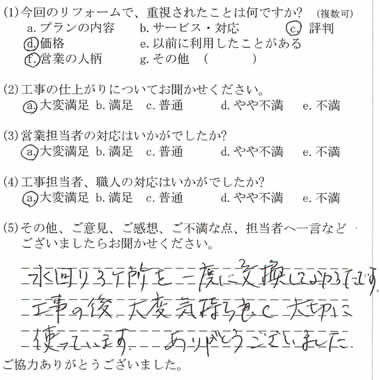 (1)今回のリフォームで、重視されたことは何ですか? (複数可)
a.プランの内容 b.サービス・対応 c.評判
d.価格 e.以前に利用したことがある
f.営業の人柄 g.その他 ( )
(2)工事の仕上がりについてお聞かせください。
a.大変満足 b.満足 c.普通 d.やや不満 e.不満
(3)営業担当者の対応はいかがでしたか?
a.大変満足 b.満足 c.普通 d.やや不満 e.不満
(4)工事担当者、職人の対応はいかがでしたか?
a.大変満足 b.満足 c.普通 d.やや不満 e.不満
(5)その他、ご意見、ご感想、ご不満な点、担当者へ一言など
ございましたらお聞かせください。
水回り3ケ所を一度に交換して
工事の後、大変気持ち 大切に
使っています。 ありがとうございました
ご協力ありがとうございました。